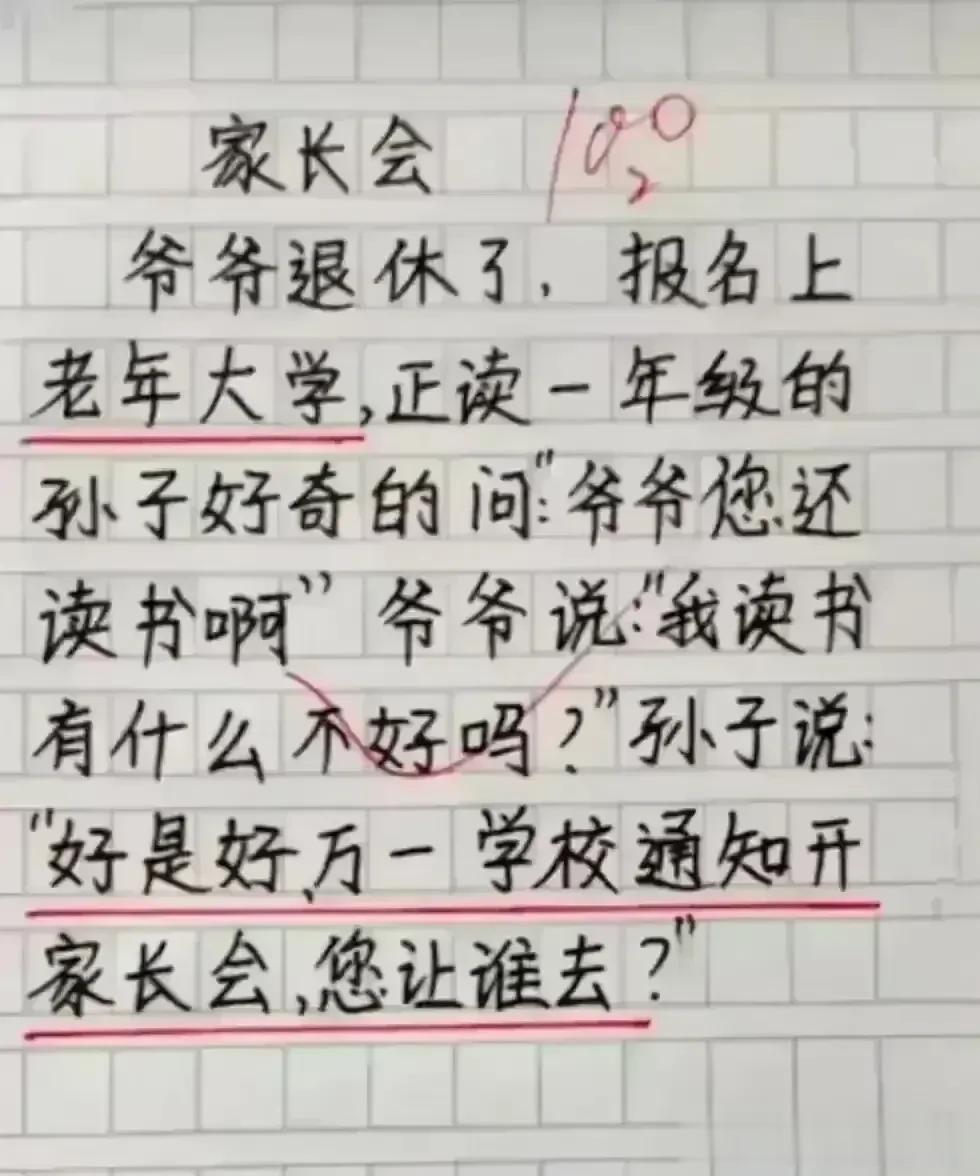 家长会 100
2
爷爷退休了，报名上
老年大学,正读一年级的
孙子好奇的问:"爷爷您还
读书啊" 爷爷说:"我读书
有什么不好吗?"孙子说:
"好是好,万一学校通知开
家长会,您让谁去?"